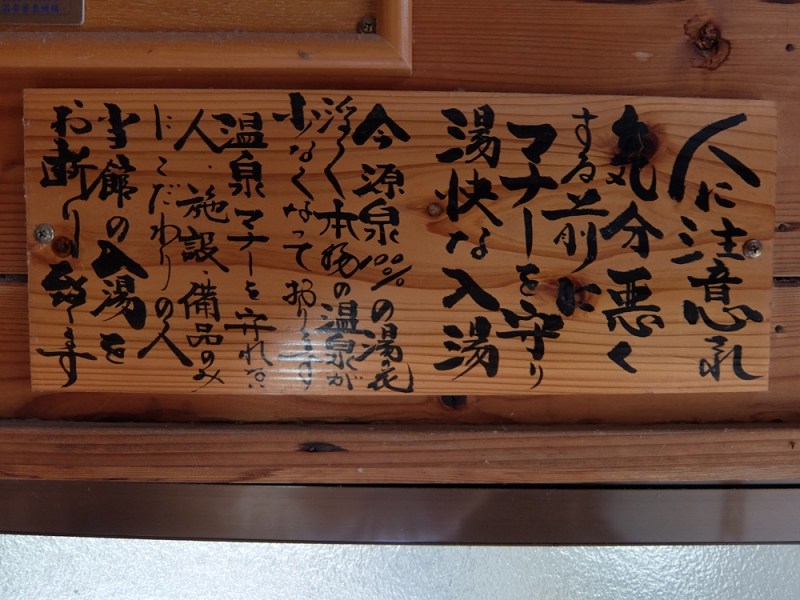 人に注意され
気分悪く
する前に
マナーを守り
湯快な入湯
今源泉100%の湯の花
浮く本物の温泉が
少なくなっております
温泉マナーを守れない
人・施設・備品のみ
にこだわりの人
当館の入湯を
お断り致します